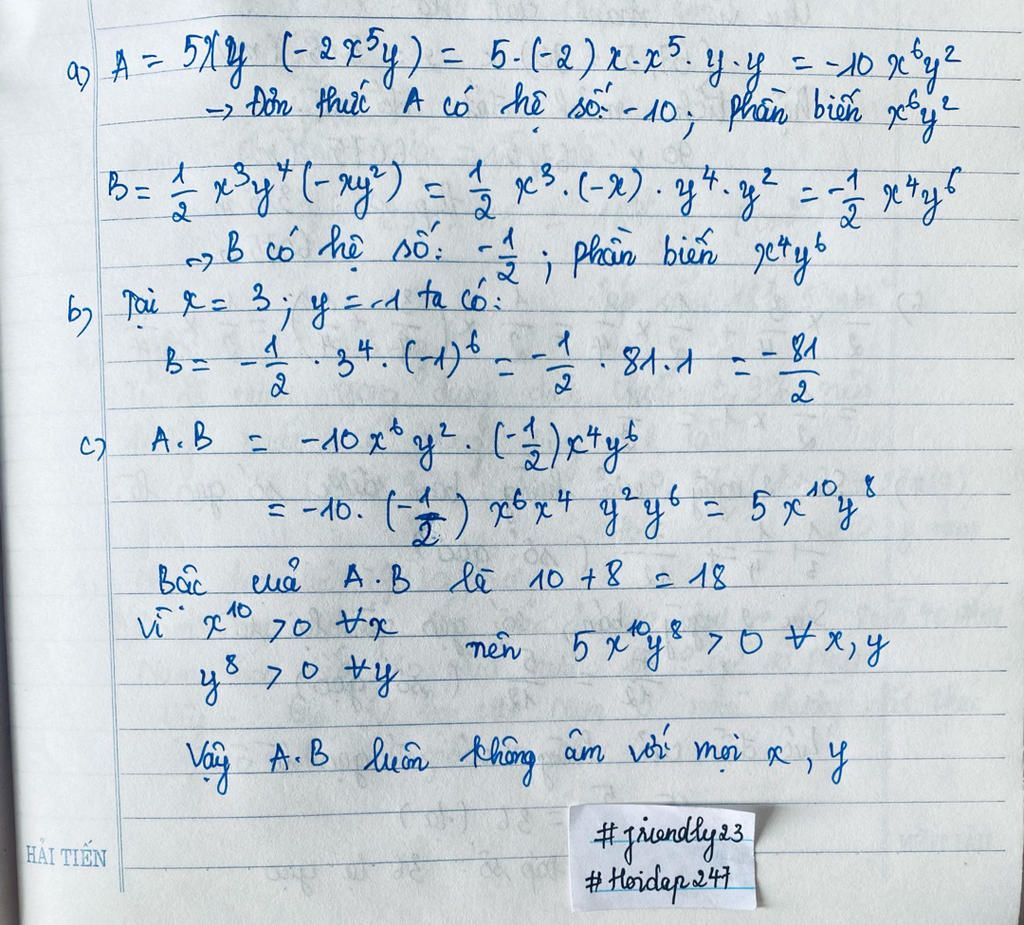 a) A = 5xy (-2x⁵y) = 5.(-2) x.x⁵.y.y = -10 x⁶y²
→ Đơn thức A có hệ số: -10; phần biến x⁶y²
B = 1/2 x³y⁴(-xy²) = 1/2 x³.(-x).y⁴.y² = -1/2 x⁴y⁶
→ B có hệ số: -1/2; phần biến x⁴y⁶
b) Tại x = 3; y = -1 ta có:
B = -1/2 . 3⁴.(-1)⁶ = -1/2 . 81.1 = -81/2
c) A.B = -10x⁶y².(-1/2)x⁴y⁶
= -10.(-1/2) x⁶x⁴ y²y⁶ = 5x¹⁰y⁸
Bậc của A.B là 10 + 8 = 18
Vì x¹⁰ > 0 ∀x
y⁸ > 0 ∀y nên 5x¹⁰y⁸ > 0 ∀x, y
Vậy A.B luôn không âm với mọi x, y
#friendly23
#Hoidap247
HẢI TIẾN